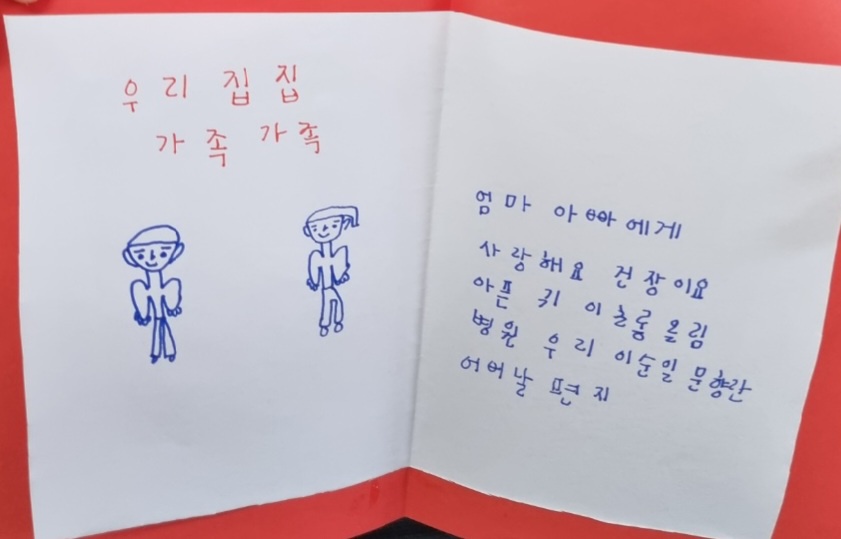 우리 집집
가족 가족
엄마 아빠에게
사랑해요 건장이요
아픈 귀 이놀룸 올림
병원 우리 이순일 문향란
어버날 편지